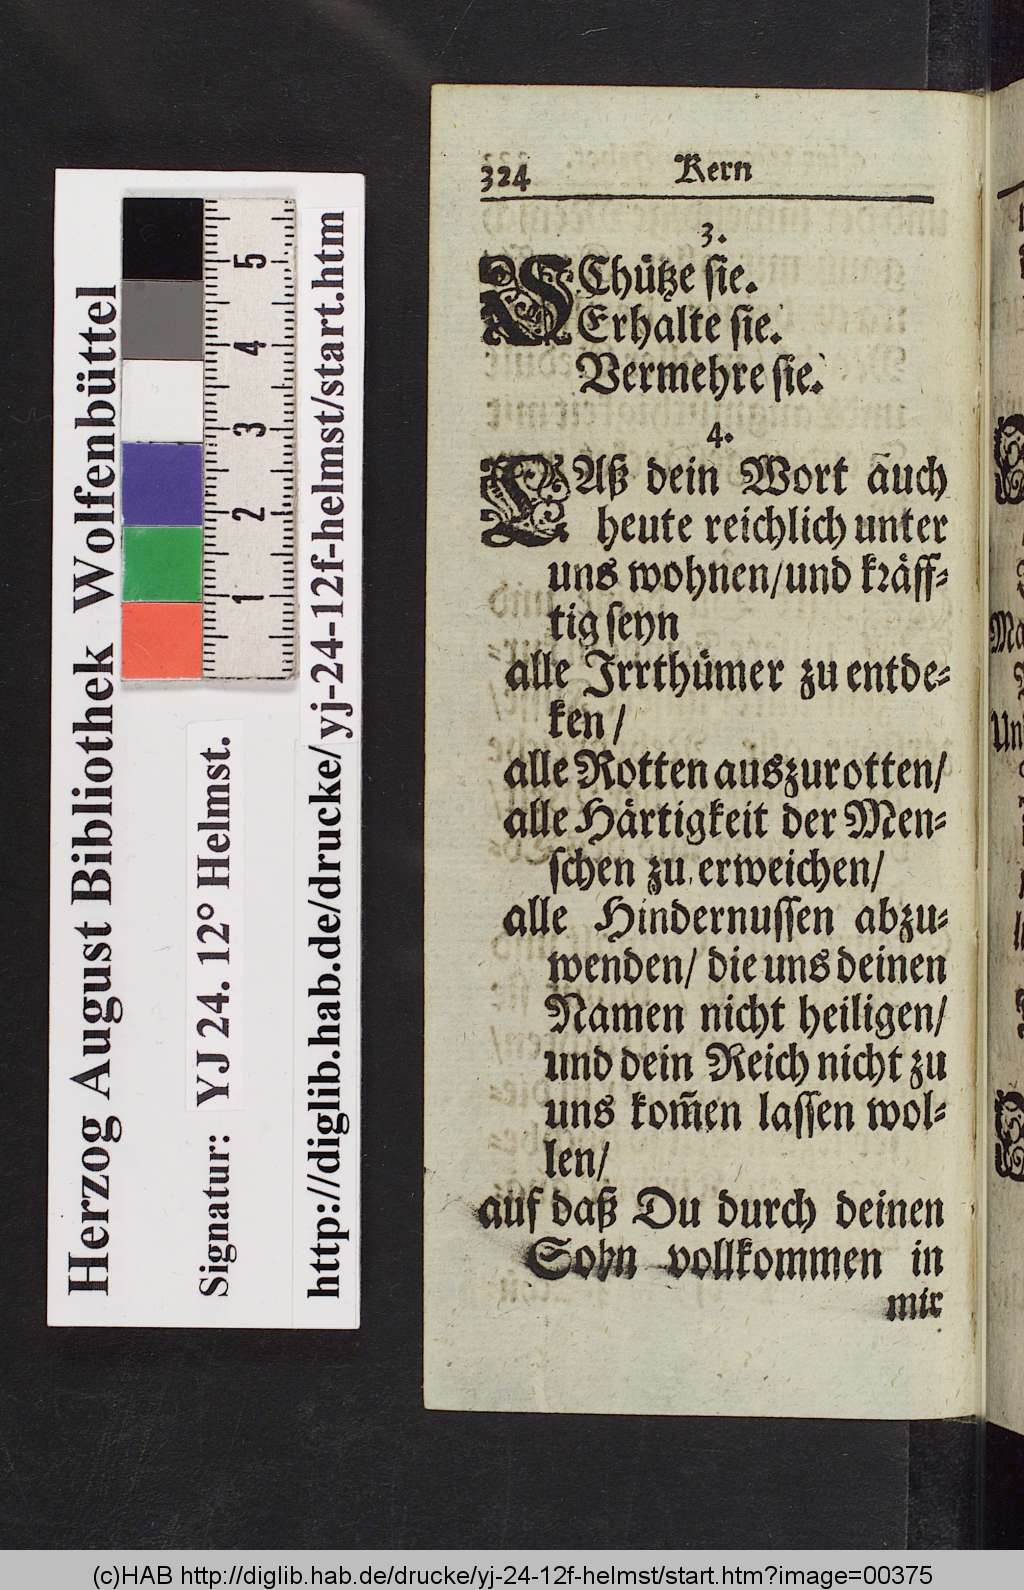 324 Kern
3.
SChütze sie.
Erhalte sie.
Vermehre sie.
4.
LAß dein Wort auch
heute reichlich unter
uns wohnen/und kräff-
tig seyn
alle Irrthümer zu entde-
ken/
alle Rotten auszurotten/
alle Härtigkeit der Men-
schen zu erweichen/
alle Hindernussen abzu-
wenden/ die uns deinen
Namen nicht heiligen/
und dein Reich nicht zu
uns kom̃en lassen wol-
len/
auf daß Du durch deinen
Sohn vollkommen in
mir
Herzog August Bibliothek Wolfenbüttel
Signatur: YJ 24. 12° Helmst.
http://diglib.hab.de/drucke/yj-24-12f-helmst/start.htm
1 2 3 4 5
(c)HAB http://diglib.hab.de/drucke/yj-24-12f-helmst/start.htm?image=00375